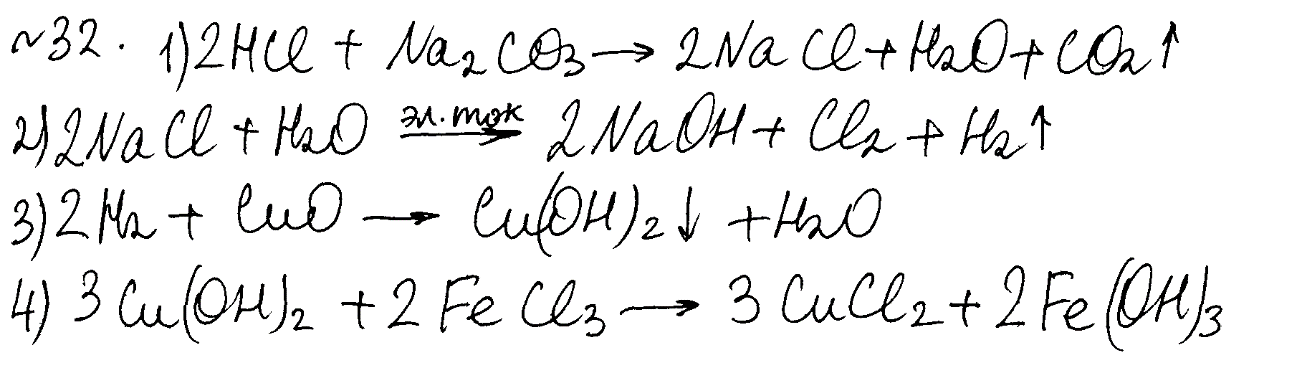 ~32. 1) 2HCl + Na₂CO₃ → 2NaCl + H₂O + CO₂↑
2) 2NaCl + H₂O эл. ток → 2NaOH + Cl₂ + H₂↑
3) 2H₂ + CuO → Cu(OH)₂↓ + H₂O
4) 3Cu(OH)₂ + 2FeCl₃ → 3CuCl₂ + 2Fe(OH)₃